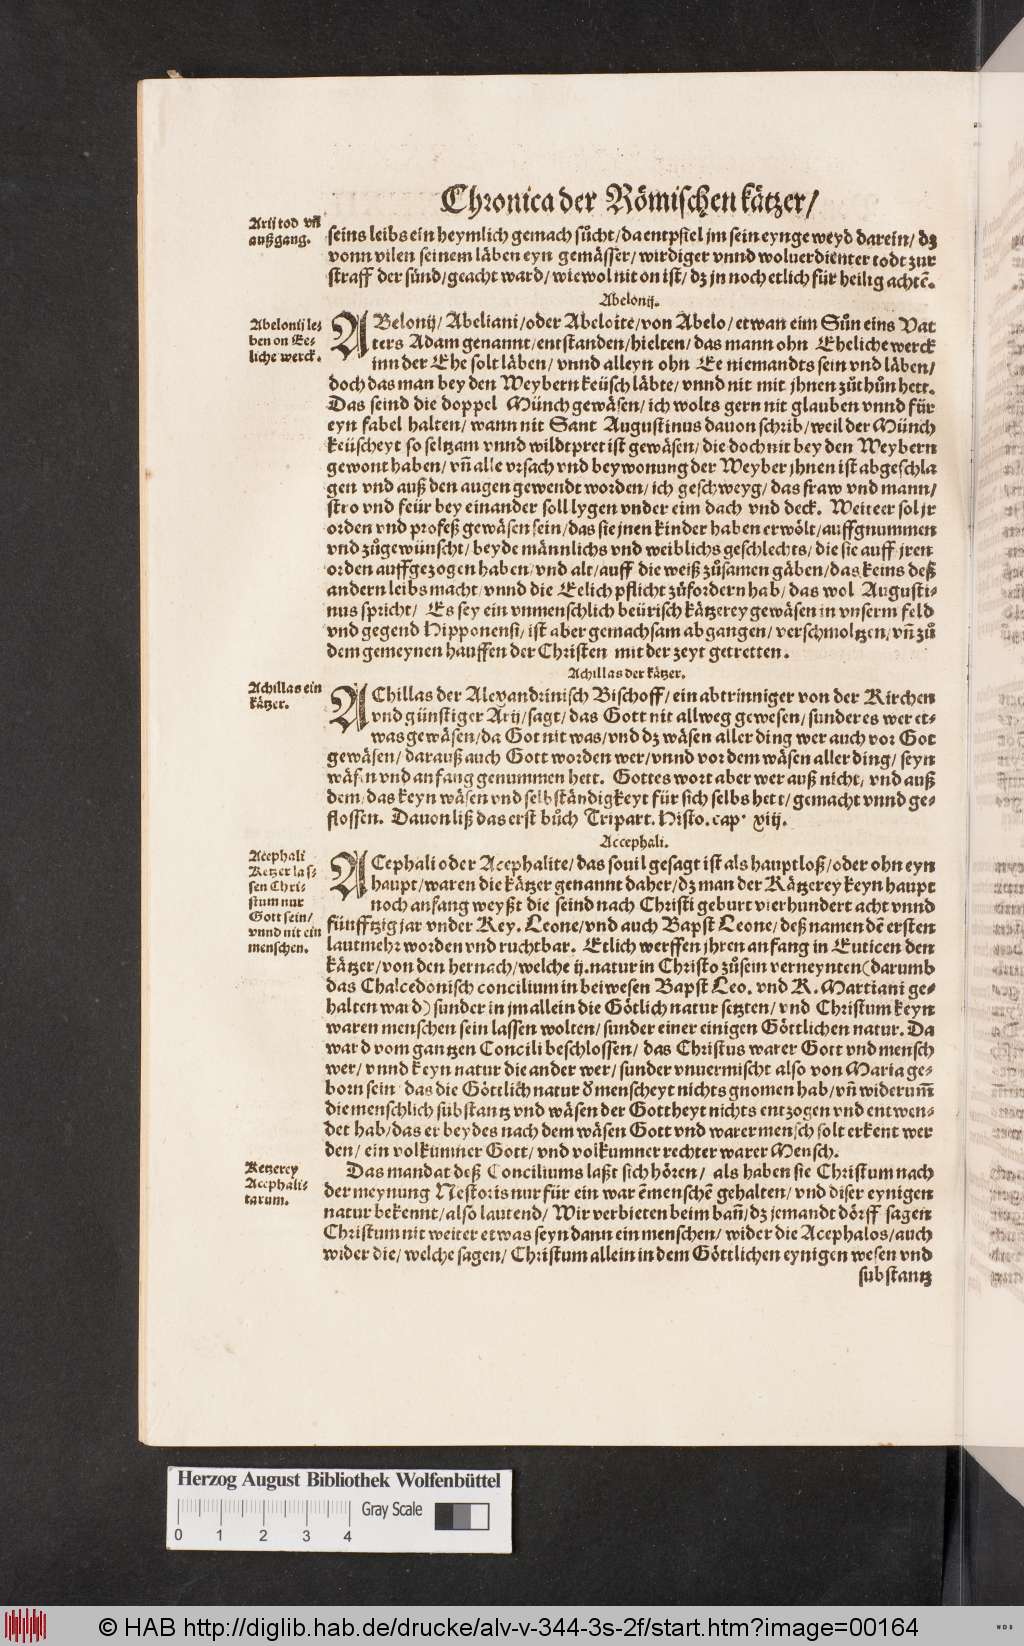 Chronica der Römischen kätzer/
Arij tod vñ
außgang.
seins leibs ein heymlich gemach sůcht/da entpfiel jm sein eyngeweyd darein/dz
vonn vilen seinem läben eyn gemässer/wirdiger vnnd wolverdienter todt zur
straff der sünd/geacht ward/wiewol nit on ist/dz jn noch etlich für heilig achtē.
Abelonij.
Abelonij le-
ben on Ee-
liche werck.
ABelonij/Abeliani/oder Abeloite/von Abelo/etwan eim Sůn eins Vat
ters Adam genannt/entstanden/hielten/das mann ohn Eheliche werck
inn der Ehe solt läben/vnnd alleyn ohn Ee niemandts sein vnd läben/
doch das man bey den Weybern keüsch läbte/vnnd nit mit jhnen zůthůn hett.
Das seind die doppel Münch gewäsen/ich wolts gern nit glauben vnnd für
eyn fabel halten/wann nit Sant Augustinus dauon schrib/weil der Münch
keüscheyt so seltzam vnnd wildtpret ist gewäsen/die doch nit bey den Weybern
gewont haben/vñ alle vrsach vnd beywonung der Weyber jhnen ist abgeschla
gen vnd auß den augen gewendt worden/ich geschweyg/das fraw vnd mann/
stro vnd feür bey einander soll lygen vnder eim dach vnd deck. Weiteer sol jr
orden vnd profeß gewäsen sein/das sie jnen kinder haben erwölt/auffgnummen
vnd zůgewünscht/beyde männlichs vnd weiblichs geschlechts/die sie auff jren
orden auffgezogen haben/vnd alt/auff die weiß zůsamen gäben/das keins deß
andern leibs macht/vnnd die Eelich pflicht zůfordern hab/das wol Augusti-
nus spricht/ Es sey ein vnmenschlich beürisch kätzerey gewäsen in vnserm feld
vnd gegend Hipponensi/ist aber gemachsam abgangen/verschmoltzen/vñ zů
dem gemeynen hauffen der Christen mit der zeyt getretten.
Achillas der kätzer.
Achillas ein
kätzer.
AChillas der Alexandrinisch Bischoff/ein abtrinniger von der Kirchen
vnd günstiger Arij/sagt/das Gott nit allweg gewesen/sunder es wer et-
was gewäsen/da Got nit was/vnd dz wäsen aller ding wer auch vor Got
gewäsen/darauß auch Gott worden wer/vnnd vor dem wäsen aller ding/seyn
wäsen vnd anfang genummen hett. Gottes wort aber wer auß nicht/vnd auß
dem/das keyn wäsen vnd selbständigkeyt für sich selbs hett/gemacht vnnd ge-
flossen. Dauon liß das erst bůch Tripart. Histo. cap. xiij.
Accephali.
Acephali
Ketzer las-
sen Chri-
stum nur
Gott sein/
vnnd nit ein
menschen.
ACephali oder Acephalite/das souil gesagt ist als hauptloß/oder ohn eyn
haupt/waren die kätzer genannt daher/dz man der Kätzerey keyn haupt
noch anfang weyßt die seind nach Christi geburt vierhundert acht vnnd
fünfftzig jar vnder Key. Leone/vnd auch Bapst Leone/deß namen dē ersten
lautmehr worden vnd ruchtbar. Etlich werffen jhren anfang in Euticen den
kätzer/von den hernach/welche ij. natur in Christo zůsein verneynten (darumb
das Chalcedonisch concilium in beiwesen Bapst Leo. vnd K. Martiani ge-
halten ward) sunder in jm allein die Götlich natur setzten/vnd Christum keyn
waren menschen sein lassen wolten/sunder einer einigen Göttlichen natur. Da
ward vom gantzen Concili beschlossen/das Christus warer Gott vnd mensch
wer/vnnd keyn natur die ander wer/sunder vnuermischt also von Maria ge-
born sein/das die Göttlich natur d' menscheyt nichts gnomen hab/vñ widerum̄
die menschlich substantz vnd wäsen der Gottheyt nichts entzogen vnd entwen-
det hab/das er beydes nach dem wäsen Gott vnd warer mensch solt erkent wer
den/ein volkumner Gott/vnd volkumner rechter warer Mensch.
Ketzerey
Acephali-
tarum.
Das mandat deß Conciliums laßt sich hören/als haben sie Christum nach
der meynung Nestoris nur für ein warē menschē gehalten/vnd diser eynigen
natur bekennt/also lautend/Wir verbieten beim bañ/dz jemandt dörff sagen
Christum nit weiter etwas seyn dann ein menschen/wider die Acephalos/auch
wider die/welche sagen/Christum allein in dem Göttlichen eynigen wesen vnd
substantz
Herzog August Bibliothek Wolfenbüttel
Gray Scale
0 1 2 3 4
© HAB http://diglib.hab.de/drucke/alv-v-344-3s-2f/start.htm?image=00164